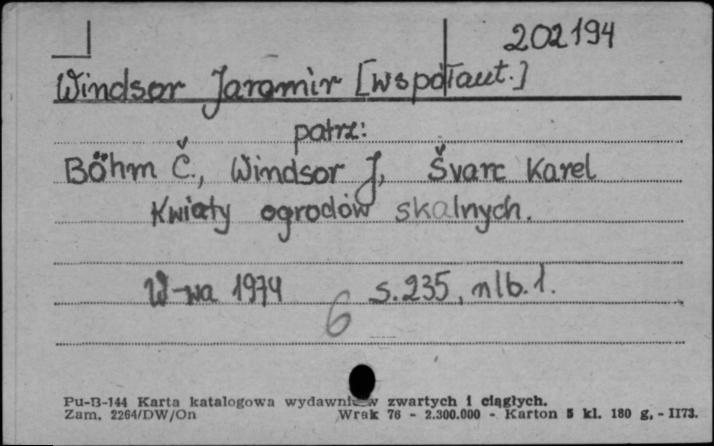 202194
Windsor Jaromir [współaut.]
patrz:
Böhm Č., Windsor J., Švarc Karel
Kwiaty ogrodów skalnych.
W-wa 1974 s. 235, nlb. 1.
6
Pu-B-144 Karta katalogowa wydawnictw zwartych i ciągłych.
Zam. 2264/DW/On Wrak 76 - 2.300.000 - Karton 5 kl. 180 g, - 1173.